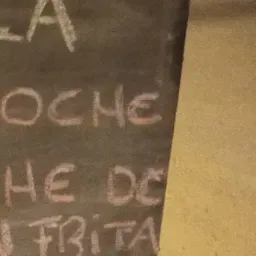 LA
OCHE
HE DE
FRITA